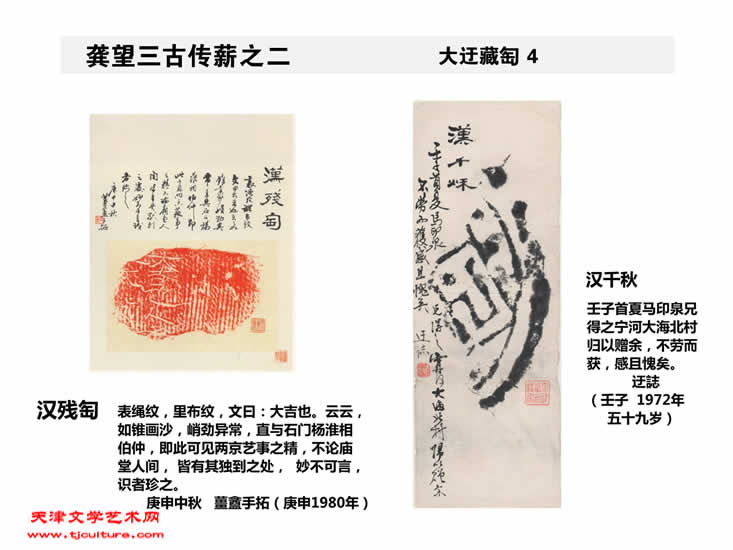 龚望三古传薪之二
大迂藏匋 4
漢殘匋
漢千秌
壬子首夏馬印泉
兄得之寧河大海北村歸以贈余
不勞而獲感且愧矣
迂誌
汉千秋
壬子首夏马印泉兄
得之宁河大海北村
归以赠余，不劳而
获，感且愧矣。
迂誌
（壬子 1972年
五十九岁）
汉残匋
表绳纹，里布纹，文曰：大吉也。云云，
如锥画沙，峭劲异常，直与石门杨淮相
伯仲，即此可见两京艺事之精，不论庙
堂人间， 皆有其独到之处， 妙不可言，
识者珍之。
庚申中秋 薑盦手拓（庚申1980年）
天津文学艺术网
www.tjculture.com